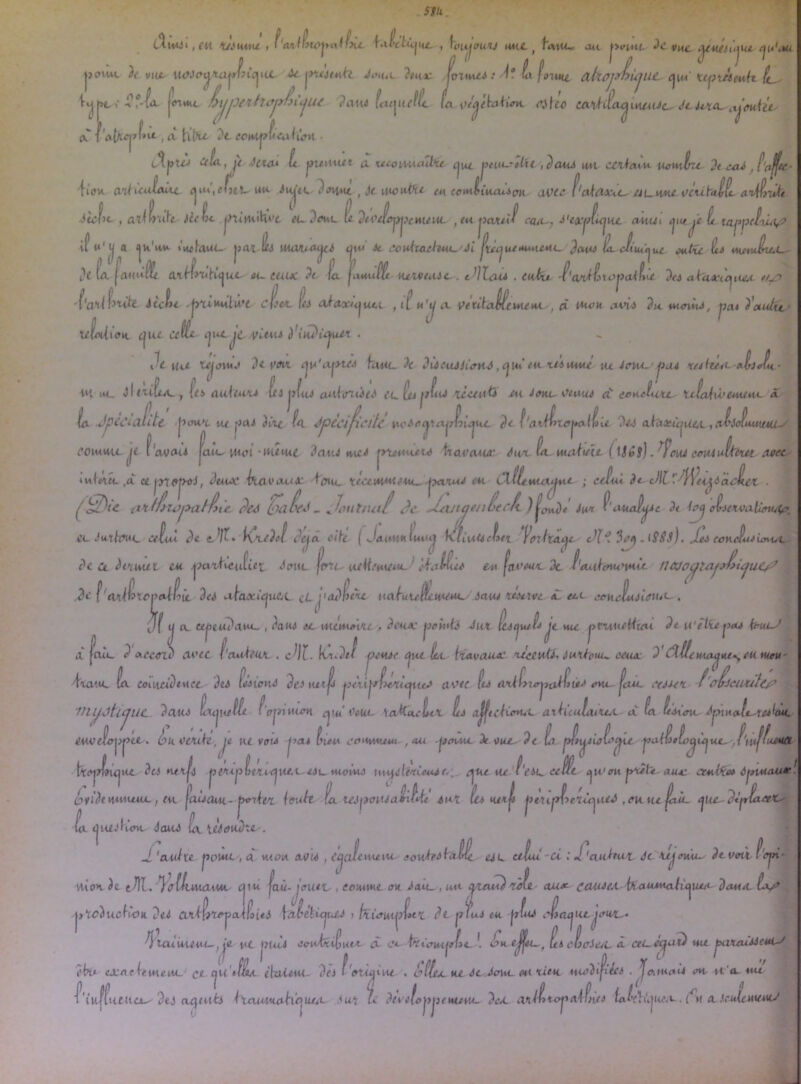 584.
Ainsi, en résumé, l'arthropathie tabétique, toujours une, tant au point de vue générique qu'au
point de vue nosographique se présente sous deux formes : 1º la forme atrophique qui représente le
type ; 2º la forme hypertrophique dans laquelle la végétation ostéo cartilagineuse se sera ajoutée
à l'atrophie, à titre de complication.
Après cela, je serai le premier à reconnaître que peut-être, dans un certain nombre de cas, l'affec-
tion articulaire qui, chez un sujet donné, se montre en combinaison avec l'ataxie est une véritable arthrite
sèche, arthrite sèche primitive et dont le développement, en pareil cas, s'explique ainsi que je le rappelais
il n'y a qu'un instant par les mariages qui se contractent si fréquemment dans la clinique entre les membres
de la famille arthritique et ceux de la famille nerveuse. Mais, entre l'arthropathie des ataxiques et
l'arthrite sèche primitive chez les ataxiques, il n'y a véritablement, à mon avis du moins, pas d'autre
relation que celle que je viens d'indiquer.
Je me réjouis de voir qu'après tant de discussions, qui en résumé ne sont pas restées absolu-
ment stériles, les auteurs les plus autorisés et les plus récents en sont venus à conclure relativement à
la spécialité pour ne pas dire la spécificité nosographique de l'arthropathie des ataxiques, absolument
comme je l'avais fait moi-même dans mes premiers travaux sur la matière (1868). Vous consulterez avec
intérêt, à ce propos, deux travaux tout récemment parus en Allemagne ; celui de M. Weizsäcker.
(Die arthropathie des Tabes _ Journal de Langenbeck) fondé sur l'analyse de 109 observations,
et surtout celui de M. Kredel déjà cité (Sammlung Klinischer Vorträge Nº 309 . 1888). Les conclusions
de ce dernier en particulier sont fort nettement établies en faveur de l'autonomie nosographique
de l'arthropathie des ataxiques et j'adhère naturellement sans réserve à ces conclusions.
Il y a cependant, dans ce mémoire, deux points sur lesquels je me permettrai de n'être pas tout
à fait d'accord avec l'auteur. M. Kredel pense que les travaux récents, surtout ceux d'Allemagne, en mon-
trant la coïncidence des lésions des nerfs périphériques avec les arthropathies ont fait cesser l'obscurité
mystique dans laquelle l'opinion qui veut rattacher les affections articulaires à la lésion spinale restait
enveloppée. En vérité, je ne vois pas bien comment, au point de vue de la physiologie pathologique, l'influence
trophique des nerfs périphériques est moins mystérieuse que ne l'est celle qu'on prête aux centres spinaux !
Evidemment, en faisant porter toute la responsabilité sur les nerfs périphériques, on ne fait que déplacer
la question sans la résoudre.
L'autre point, à mon avis, également contestable est celui-ci : L'auteur se réjouit de voir l'opi-
nion de M. Volkmann qui fait jouer, comme on sait, un grand rôle aux causes traumatiques dans la
production des arthropathies tabétiques, triompher de plus en plus chaque jour.
Vraiment, je ne puis contribuer à ce triomphe ! En effet, les choses à cet égard me paraissent
être exactement ce qu'elles étaient dès l'origine. Elles ne se sont en rien modifiées. Jamais on n'a nié
l'influence des agents traumatiques sur le développement des arthropathies tabétiques. On a seulement